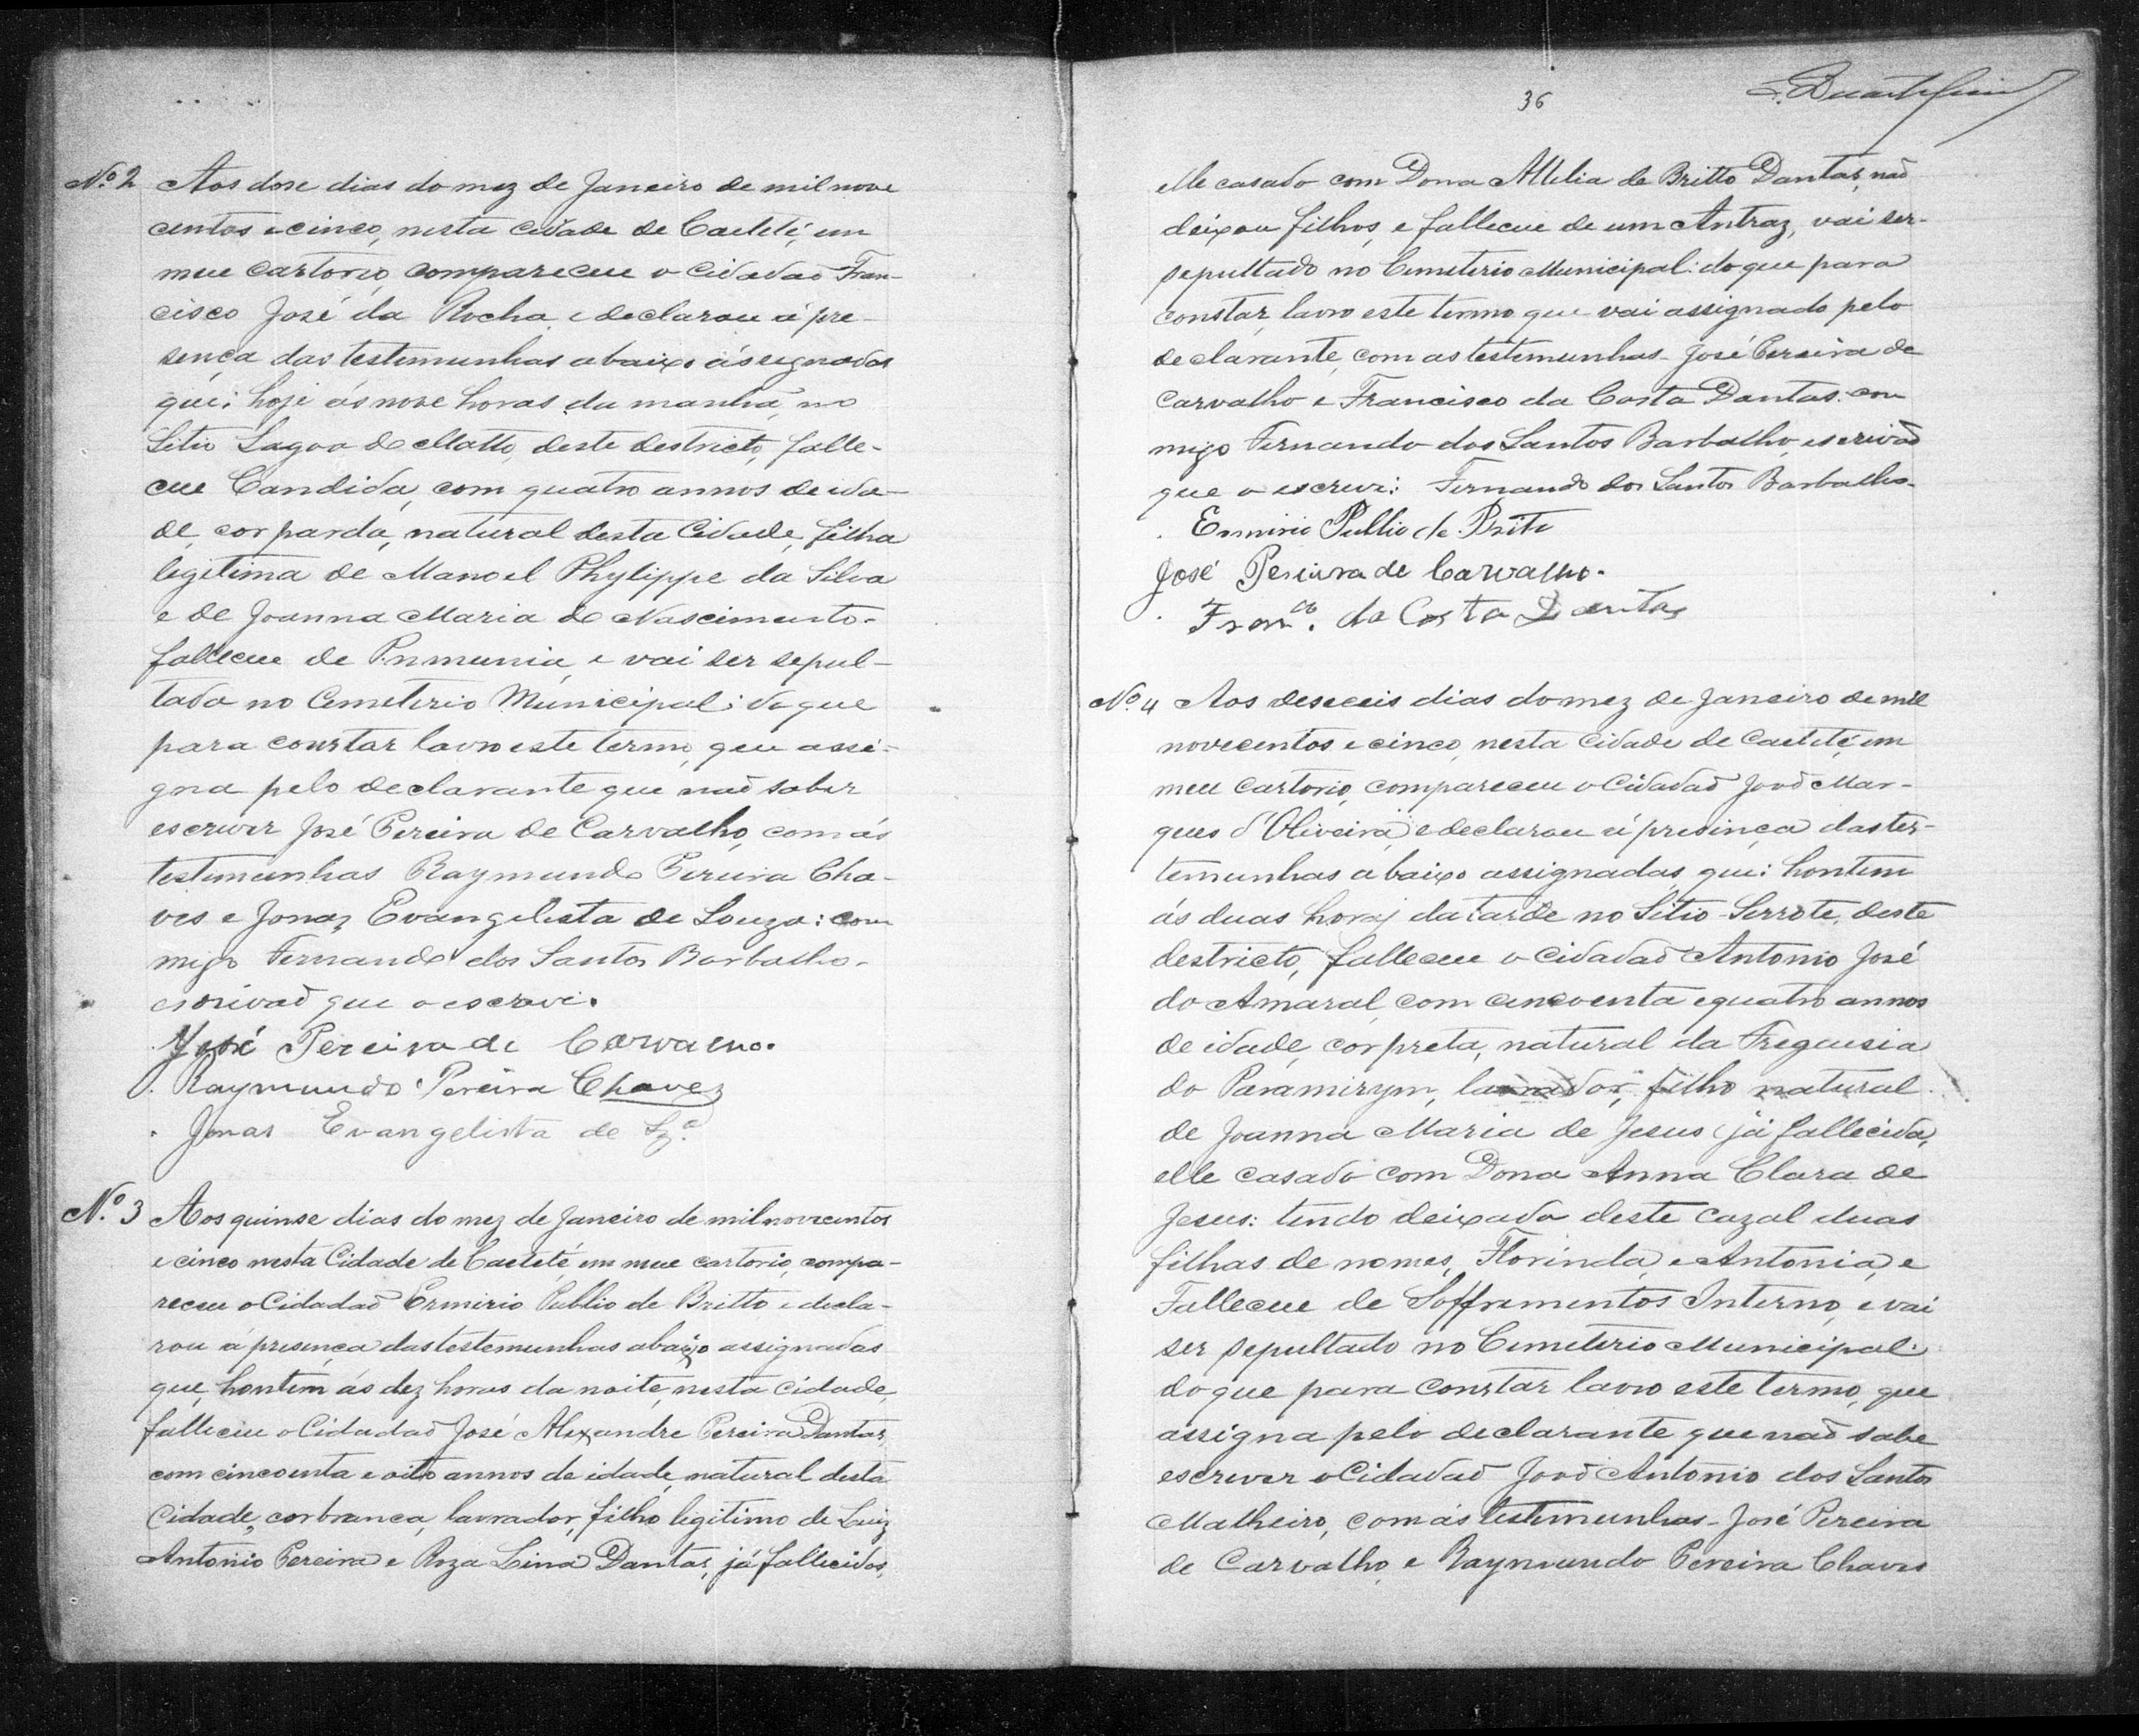 Nº 2 Aos dose dias do mez de Janeiro de mil nove
centos e cinco, nesta cidade de Caeteté, em
meu cartorio, compareceu o Cidadaõ Fran-
cisco José da Rocha, e declarou á pre-
sença das testemunhas abaixo ássignadas
que: hoje ás nove horas da manhã, no
Sitio Lagoa do Matto, deste destricto, falle-
ceu Candida, com quatro annos de ida-
de, cor parda, natural desta Cidade, filha
legitima de Manoel Phylippe da Silva
e de Joanna Maria do Nascimento.
falleceu de Pnmunia, e vai ser sepul-
tada no Cemeterio Municipal: do que
para constar lavro este termo, que assi-
gna pelo declarante que naõ saber
escrever José Pereira de Carvalho, com ás
testemunhas Raymundo Pereira Cha-
ves e Jonas Evangelista de Souza: com
migo Fernando dos Santos Barbalho.
escrivaõ que o escrevi.
José Pereira de Carvalho.
Raymundo Pereira Chaves
Jonas Evangelista de Sz.ª
Nº 3 Aos quinse dias do mez de Janeiro de mil novecentos
e cinco nesta Cidade de Caeteté, em meu cartorio, compa-
receu o Cidadaõ Ermirio Publio de Britto e decla-
rou á presença das testemunhas abaixo assignadas
que, hontem ás dez horas da noite, nesta cidade,
falleceu o Cidadaõ José Alexandre Pereira Dantas,
com cincoenta e oito annos de idade, natural desta
Cidade, cor branca, lavrador, filho legitimo de Luiz
Antonio Pereira e Roza Lina Dantas, já fallecidos,
36
elle casado com Dona Allelia de Britto Dantas, naõ
deixou filhos, e falleceu de um Antraz, vai ser
sepultado no Cemeterio Municipal: do que para
constar, lavro este termo que vai assignado pelo
declarante, com as testemunhas José Pereira de
Carvalho e Francisco da Costa Dantas: com
migo Fernando dos Santos Barbalho, escrivaõ
que o escrevi: Fernando dos Santos Barbalho.
Ermirio Publio de Brito
José Pereira de Carvalho.
Fran.co da Costa Dantas
Nº 4 Aos deseceis dias do mez de Janeiro de mil
novecentos e cinco, nesta Cidade de Caeteté, em
meu Cartorio, compareceu o Cidadaõ Joaõ Mar-
ques d'Oliveira, e declarou á presença das tes-
temunhas abaixo assignadas, que: hontem
ás duas horas da tarde no Sitio Serrote, deste
destricto, falleceu o Cidadaõ Antonio José
do Amaral, com cincoenta e quatro annos
de idade, cor preta, natural da Freguesia
do Paramirym, lavrador, filho natural
de Joanna Maria de Jesus, já fallecida,
elle casado com Dona Anna Clara de
Jesus: tendo deixado deste cazal duas
filhas de nomes, Florinda, e Antonia, e
Falleceu de Soffrimentos Interno, e vai
ser sepultado no Cemeterio Municipal:
do que para constar lavro este termo, que
assigna pelo declarante que naõ sabe
escrever o Cidadaõ Joaõ Antonio dos Santos
Malheiro, com ás testemunhas José Pereira
de Carvalho, e Raymundo Pereira Chaves